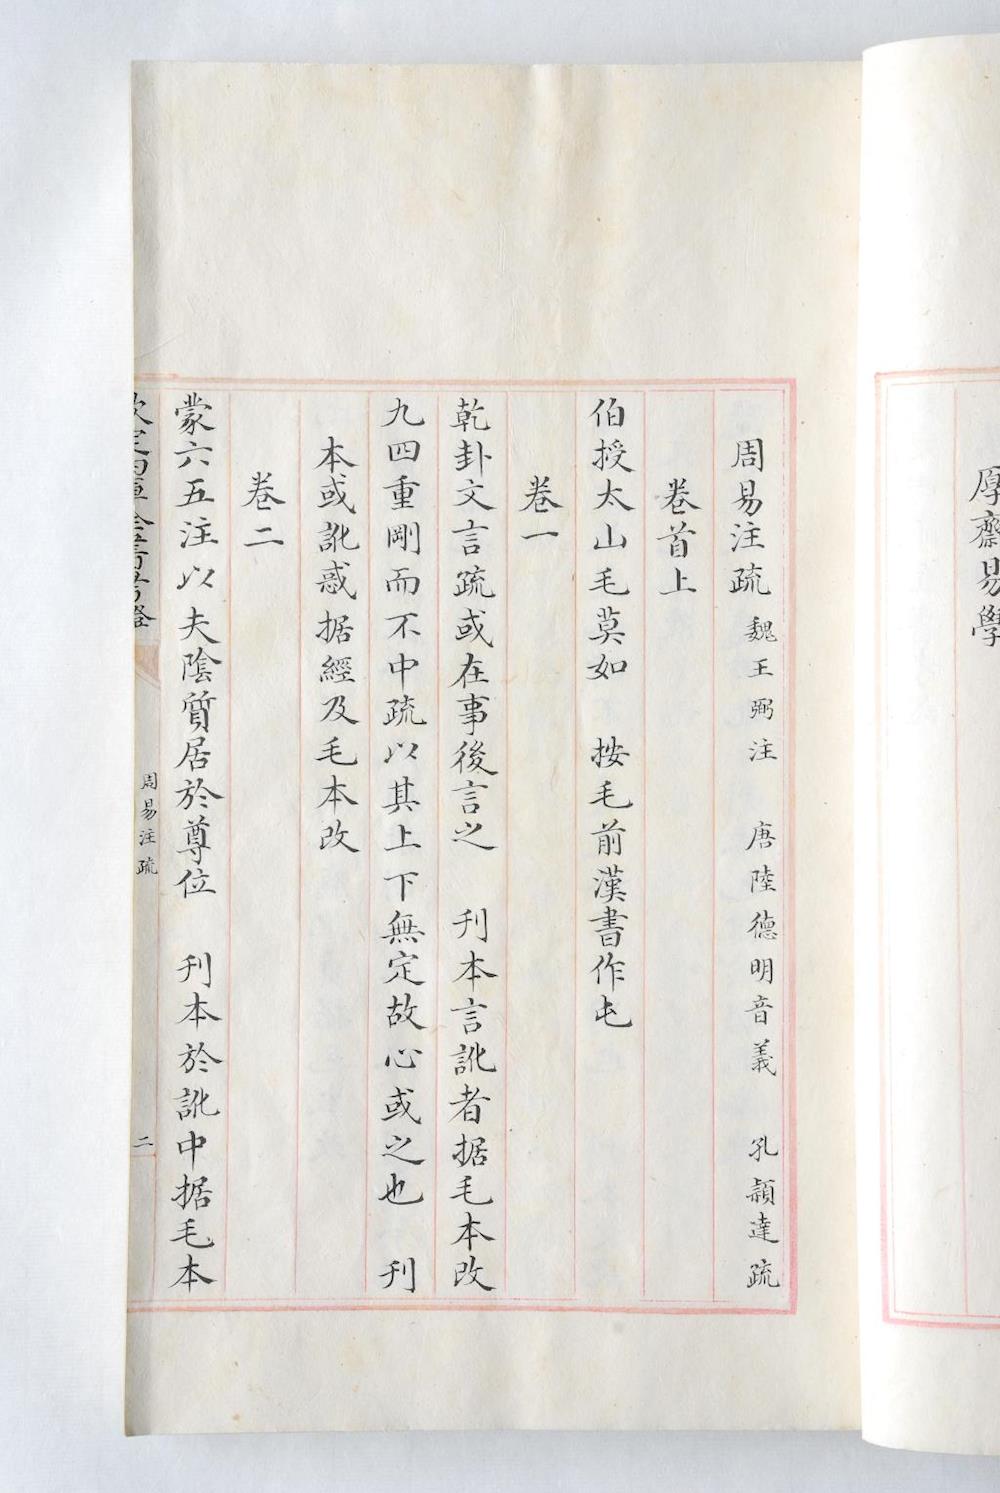 厚齋易學
周易注疏 魏王弼注 唐陸德明音義 孔穎達疏
卷首上
伯授太山毛莫如 按毛前漢書作屯
卷一
乾卦文言疏或在事後言之 刊本言訛者据毛本改
九四重剛而不中疏以其上下無定故心或之也 刊
本或訛惑据經及毛本改
卷二
蒙六五注以夫陰質居於尊位 刊本於訛中据毛本
周易注疏
二